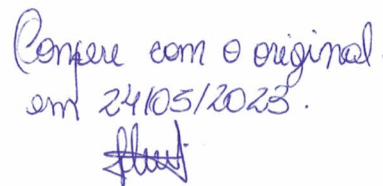 Confere com o original.
em 24/05/2023.